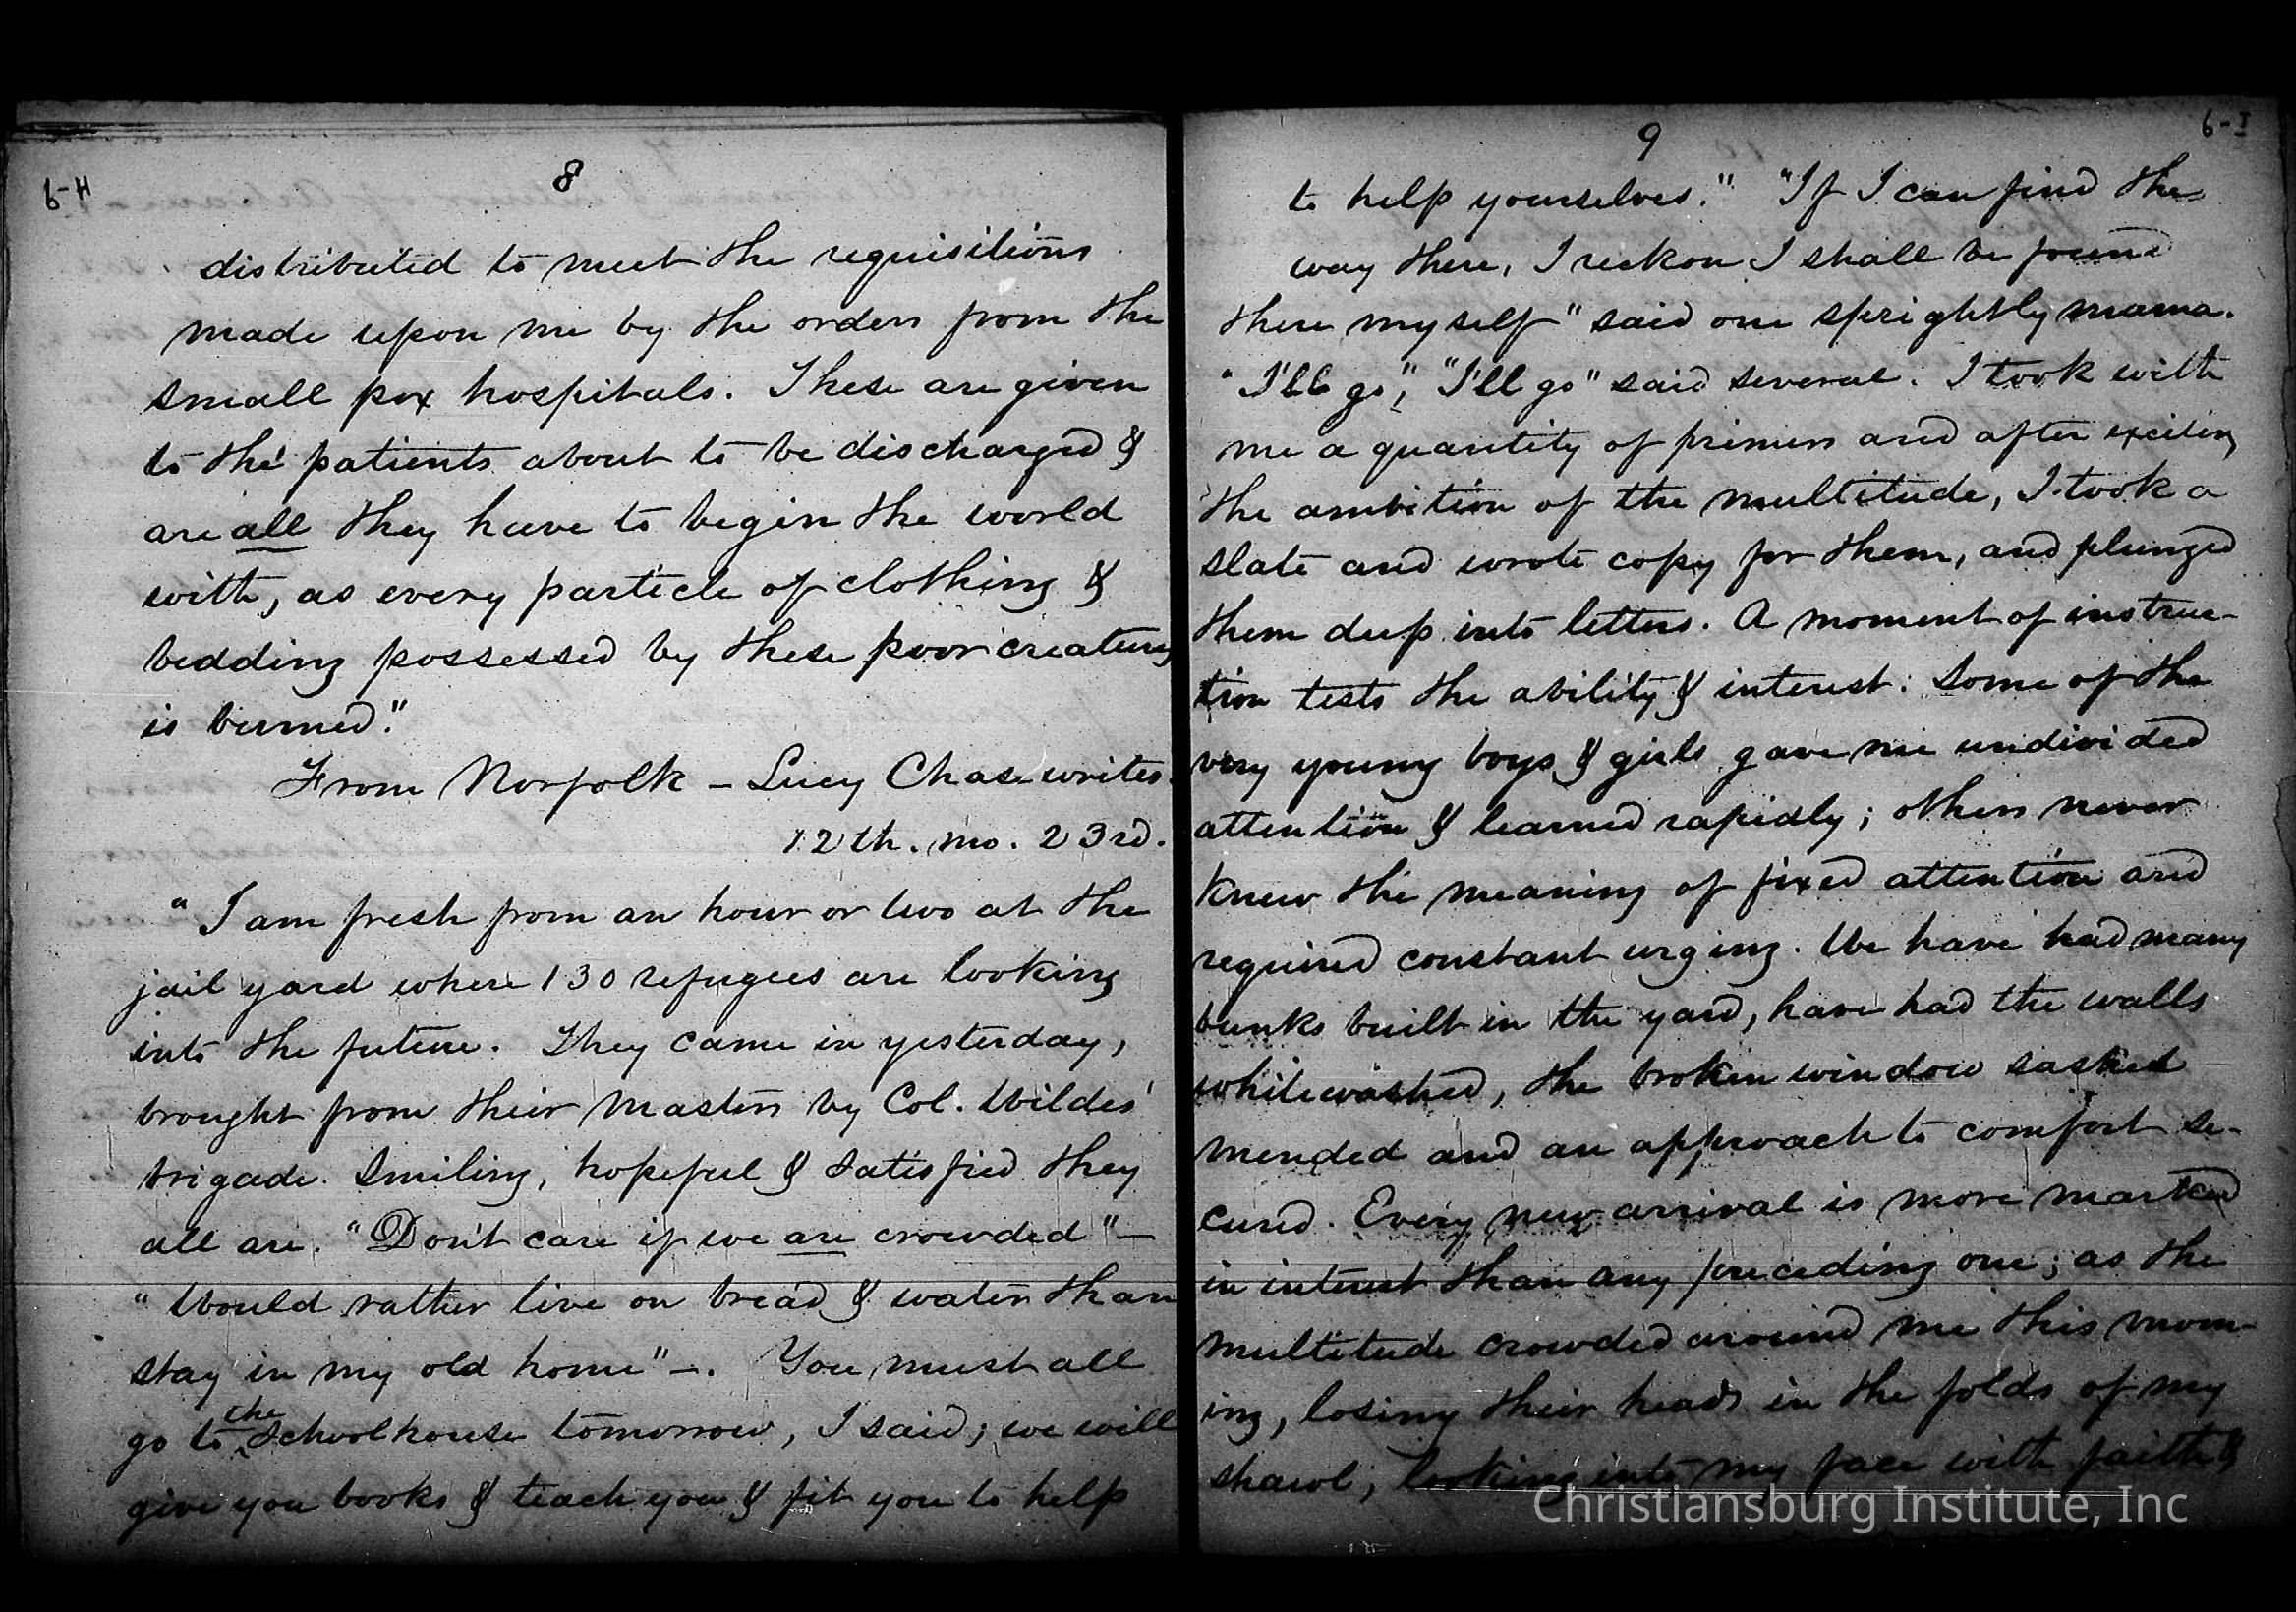 6-H
8
distributed to meet the requisitions
made upon me by the orders from the
small pox hospitals. These are given
to the patients about to be discharged &
are all they have to begin the world
with, as every particle of clothing &
bedding possessed by these poor creatures
is burned."
From Norfolk - Lucy Chase writes.
12th. mo. 23rd.
"I am fresh from an hour or two at the
jail yard where 130 refugees are looking
into the future. They came in yesterday,
brought from their masters by Col. Wildes'
brigade. Smiling, hopeful & satisfied they
all are. "Don't care if we are crowded" —
"Would rather live on bread & water than
stay in my old home" —. You must all
go to the schoolhouse tomorrow, I said; we will
give you books & teach you & fit you to help
6-I
9
to help yourselves." "If I can find the
way there, I reckon I shall be found
there myself" said one sprightly mama.
"I'll go", "I'll go" said several. I took with
me a quantity of primers and after exciting
the ambition of the multitude, I took a
slate and wrote copy for them, and plunged
them deep into letters. A moment of instruc-
tion tests the ability & interest: Some of the
very young boys & girls gave me undivided
attention & learned rapidly; others never
knew the meaning of fixed attention and
required constant urging. We have had many
bunks built in the yard, have had the walls
whitewashed, the broken window sashes
mended and an approach to comfort se-
cured. Every new arrival is more marked
in interest than any preceding one; as the
multitude crowded around me this morn-
ing, losing their heads in the folds of my
shawl; looking into my face with faith &
Christiansburg Institute, Inc